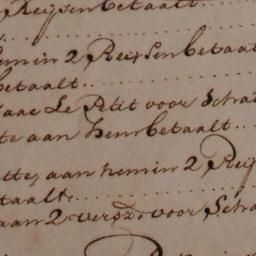 Reijsen betaalt
hem in 2 Reijsen betaalt
betaalt
Isaac Le Petit voor Scha
te aan hem betaalt
tte, aan hem in 2 Reij
taalt
aan 2 versz: voor Scha